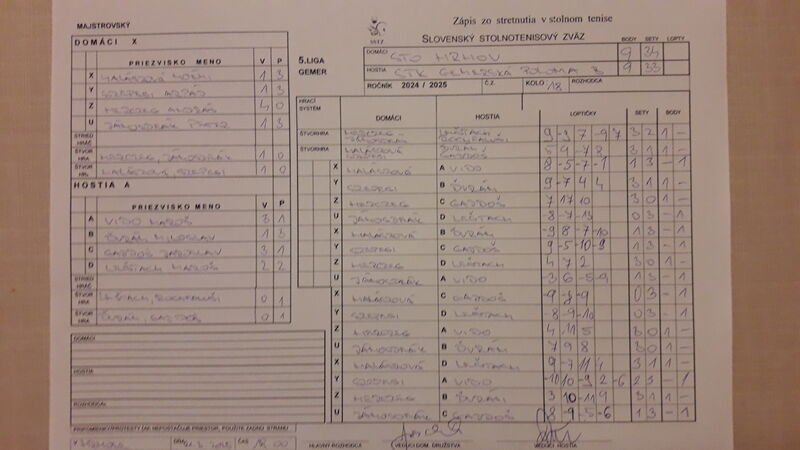 MAJSTROVSKÝ
Zápis zo stretnutia v stolnom tenise
SLOVENSKÝ STOLNOTENISOVÝ ZVÄZ
BODY SETY LOPTY
DOMÁCI STO MRHOV 9 34
HOSTIA STK GEMERSKÁ POLOMA B 9 33
5.LIGA
GEMER
ROČNÍK 2024 / 2025 Č.Z. KOLO 18 ROZHODCA
DOMÁCI X
PRIEZVISKO MENO V P
X HALÁSZOVÁ 1 3
Y SZEPESI ARPÁD 1 3
Z HERCZEG 4 0
U JÁMOSDRÁK PETER 1 3
STRIED HRÁČ
ŠTVOR HRA HERCZEG, JÁMOSDRÁK 1 0
ŠTVOR HRA HALÁSZOVÁ, SZEPESI 1 0
HOSTIA A
PRIEZVISKO MENO V P
A VIDO MAROŠ 3 1
B ĎURÁN MILOSLAV 1 3
C GAJDOŠ JAROSLAV 3 1
D LEŠTACH MAROŠ 2 2
STRIED HRÁČ
ŠTVOR HRA LEŠTACH, 0 1
ŠTVOR HRA ĎURÁN, GAJDOŠ 0 1
HRACÍ SYSTÉM DOMÁCI HOSTIA LOPTIČKY SETY BODY
ŠTVORHRA HERCZEG JÁMOSDRÁK LEŠTACH 9 -9 7 -9 7 3 2 1 -
ŠTVORHRA HALÁSZOVÁ SZEPESI ĎURÁN GAJDOŠ 5 9 -7 8 3 1 1 -
X HALÁSZOVÁ A VIDO 8 -5 -7 -1 1 3 - 1
Y SZEPESI B ĎURÁN 9 -7 4 4 3 1 1 -
Z HERCZEG C GAJDOŠ 7 17 10 3 0 1 -
U JÁMOSDRÁK D LEŠTACH -8 -7 -13 0 3 - 1
X HALÁSZOVÁ B ĎURÁN -9 8 -7 -10 1 3 - 1
Y SZEPESI C GAJDOŠ 9 -5 -10 -9 1 3 - 1
Z HERCZEG D LEŠTACH 4 7 2 3 0 1 -
U JÁMOSDRÁK A VIDO -3 6 -5 -9 1 3 - 1
X HALÁSZOVÁ C GAJDOŠ -9 -8 -9 0 3 - 1
Y SZEPESI D LEŠTACH -8 -9 -10 0 3 - 1
Z HERCZEG A VIDO 4 11 5 3 0 1 -
U JÁMOSDRÁK B ĎURÁN 7 9 8 3 0 1 -
X HALÁSZOVÁ D LEŠTACH 9 -7 11 4 3 1 1 -
Y SZEPESI A VIDO -10 10 -9 2 -6 2 3 - 1
Z HERCZEG B ĎURÁN 3 10 -11 9 3 1 1 -
U JÁMOSDRÁK C GAJDOŠ 8 -9 -5 -6 1 3 - 1
DOMÁCI:
HOSTIA:
ROZHODCA:
PRIPOMIENKY/PROTESTY (AK NEPOSTAČUJE PRIESTOR, POUŽITE ZADNÚ STRANU
V DŇA ČAS 00
HLAVNÝ ROZHODCA VEDÚCI DOM. DRUŽSTVA VEDÚCI HOSTIA